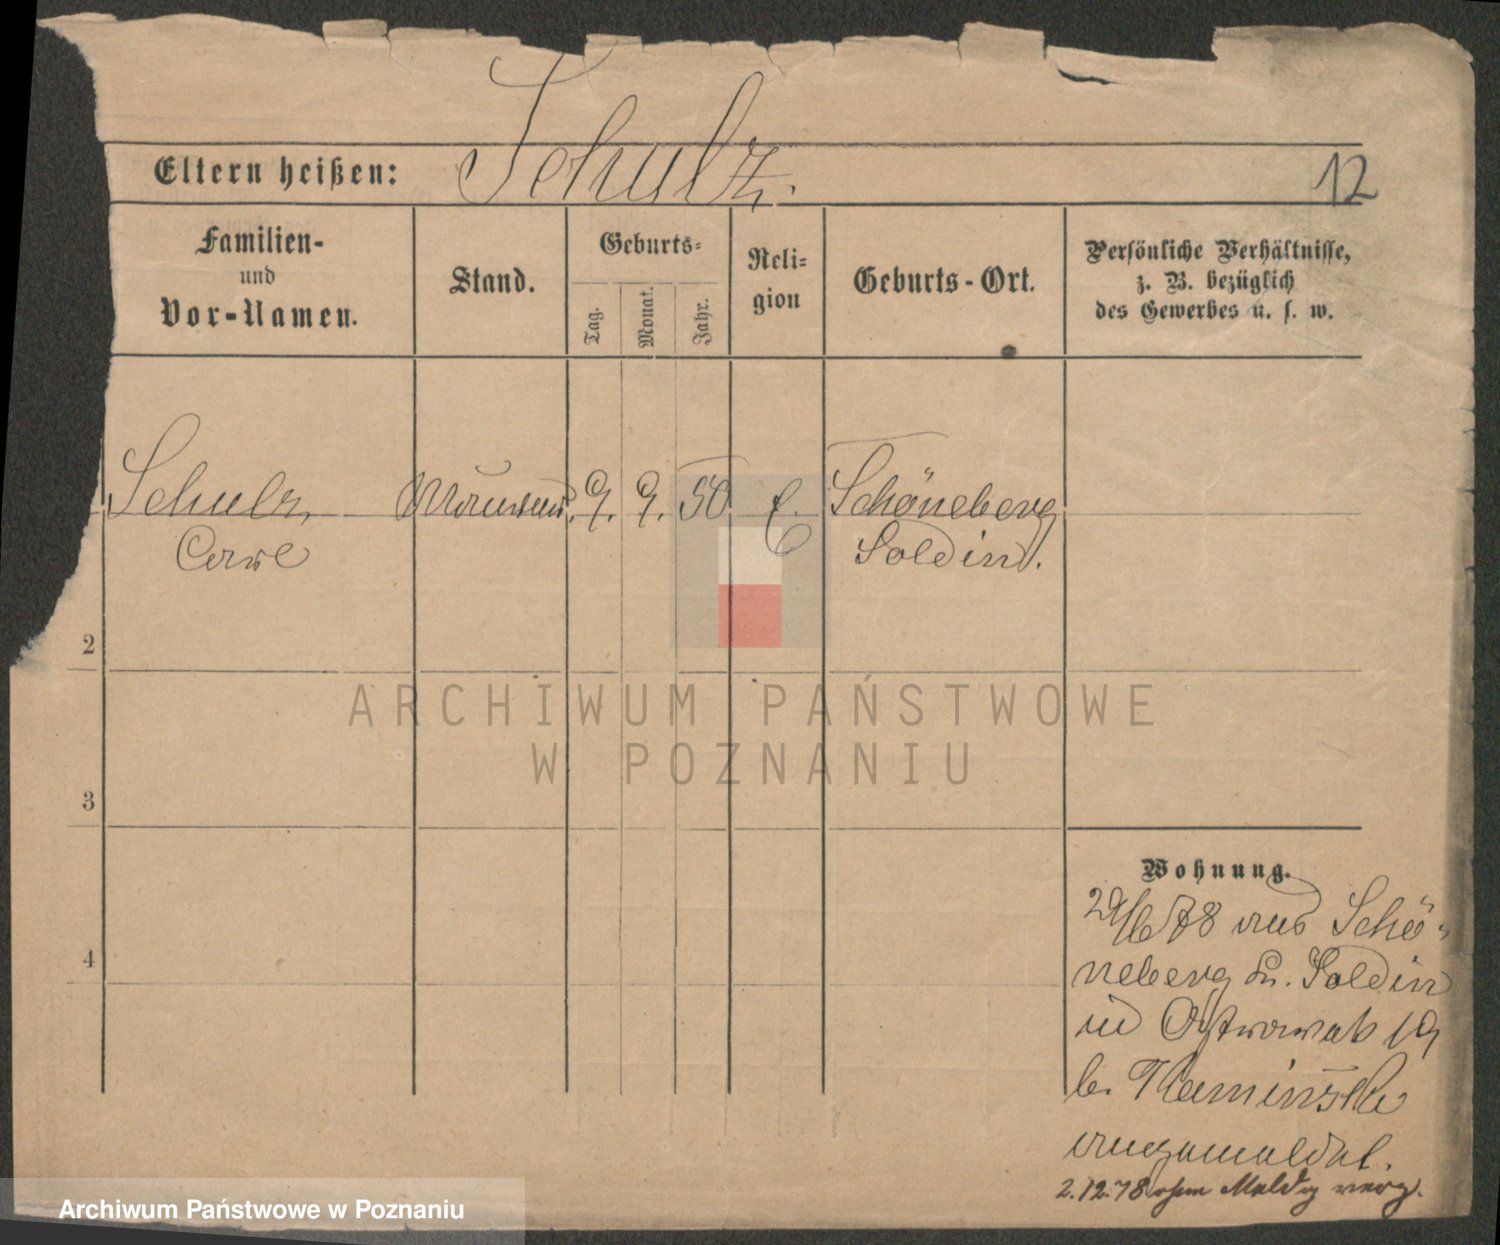 Schulz.
Eltern heißen:
12
Familien-
und
Vor-Namen.
Stand.
Geburts-
Tag.
Monat.
Jahr.
Reli-
gion
Geburts-Ort.
Persönliche Verhältnisse,
z. B. bezüglich
des Gewerbes u. s. w.
Schulz,
Carl
9. 9. 50
Schöneberg
Soldin.
2
3
4
Wohnung.
29/6 78 aus Schö-
neberg Kr. Soldin
in Ostrowek 19
b. Kaminski
angemeldet.
2.12.78 ohne Meldg verz.
ARCHIWUM PAŃSTWOWE
W POZNANIU
Archiwum Państwowe w Poznaniu